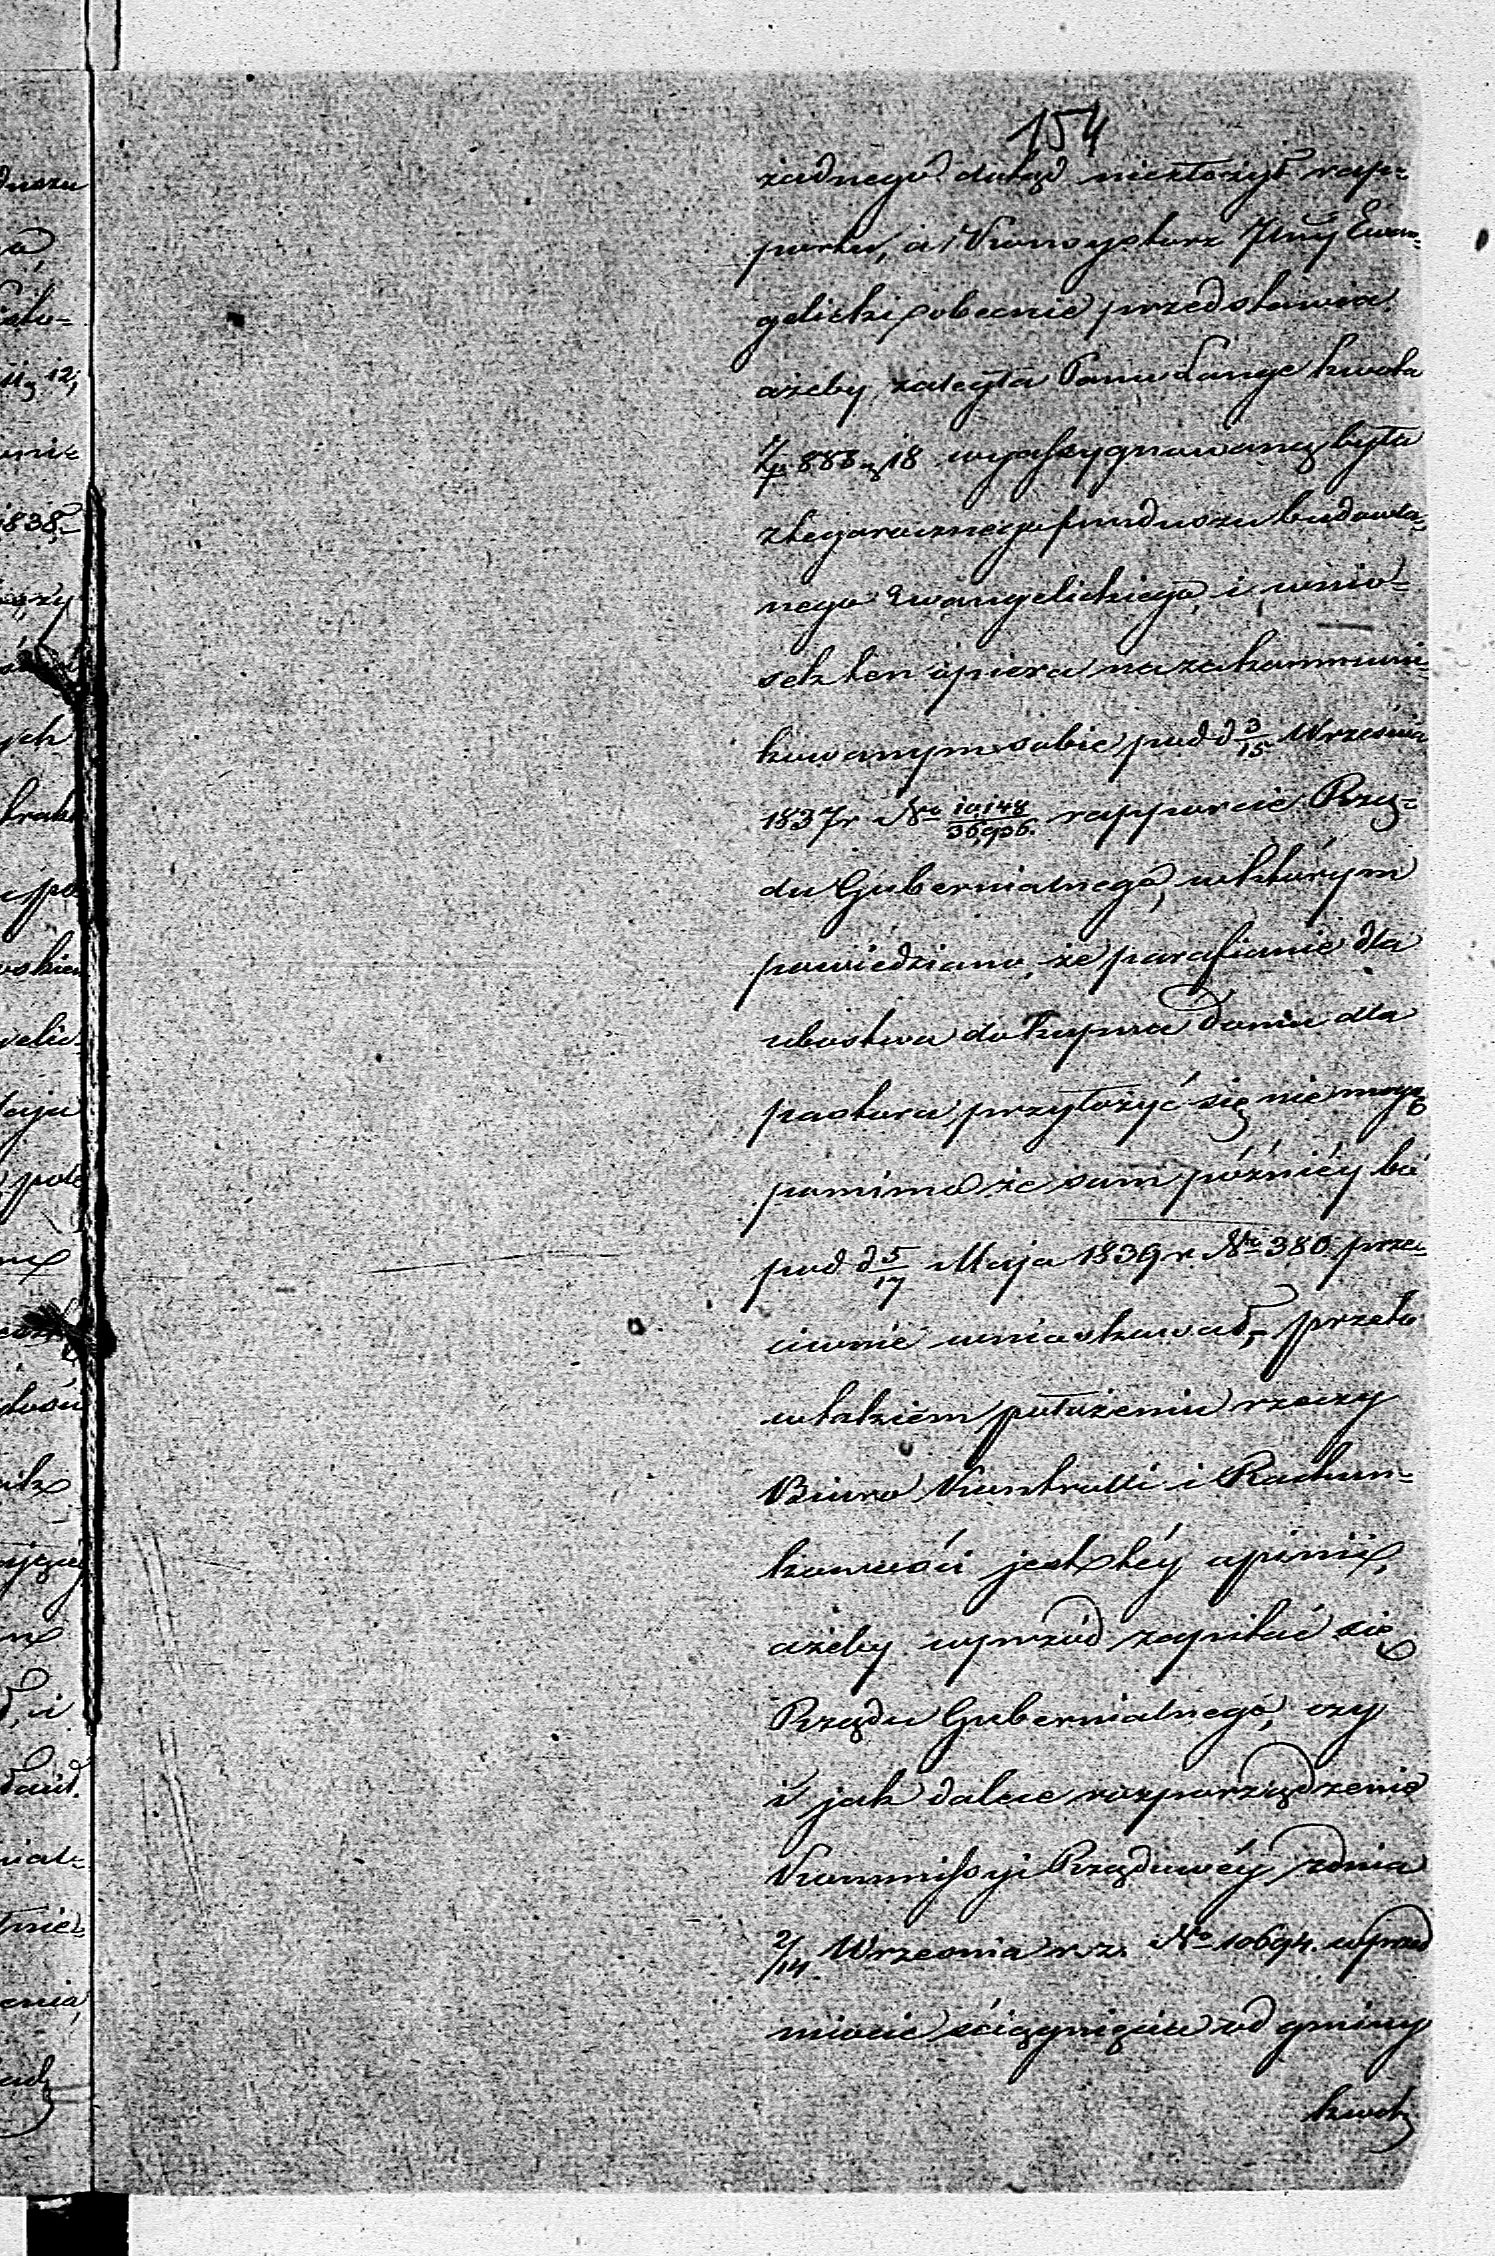 154
żadnego dotąd niezłożył rap-
portu, a Konsystorz Jlny Ewan-
gelicki obecnie przedstawia
ażeby zaległa Panu Lange kwota
Zp 888 g 18 wyassygnowaną była
z tegorocznego funduszu budowla-
nego Ewangelickiego, i wnio-
sek ten opiera na zakommuni-
kowanym sobie pod d 3/15 Września
1837 r No rapporcie Rzą-
du Gubernialnego, w którym
powiedziano, że parafianie dla
ubostwa do trzymania dla
pastora przyłożyć się nie mogą
pomimo że sam późniéy bo
pod d 5/17 Maja 1839 r. No 380 prze-
ciwnie wnioskował, - przeto
w takiem położeniu rzeczy
Biuro Kontrolli i Rachun-
kowości jest téy opinii,
ażeby wprzód zapytać się
Rządu Gubernialnego, czy
i jak dalece rozporządzenie
Kommissyi Rządowéy z dnia
2/14 Września r. z. No 10694. w przed
miocie ściągnięcia od gminy
kwoty